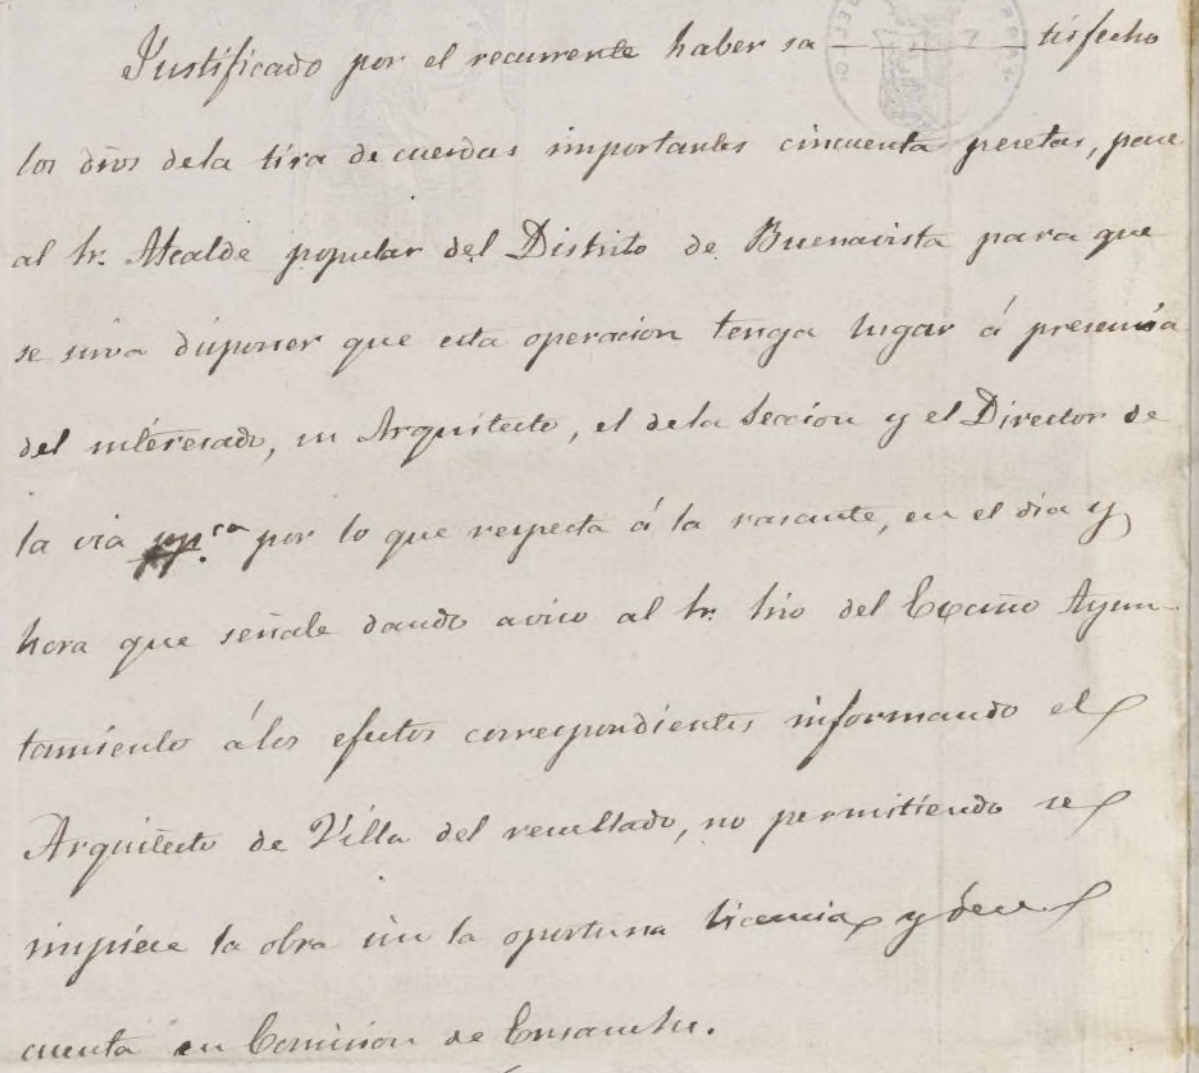 Justificado por el recurrente haber sa — tisfecho
los dros dela tira de cuerdas importantes cincuenta pesetas, pase
al Sr. Alcalde popular del Distrito de Buenavista para que
se sirva disponer que esta operacion tenga lugar á presencia
del interesado, su Arquitecto, el dela Seccion y el Director de
la via pp.ca por lo que respecta á la rasante, en el dia y
hora que señale dando aviso al Sr. Srio del Excmo Ayun-
tamiento álos efectos correspondientes informando el
Arquitecto de Villa del resultado, no permitiendo se
impiece la obra sin la oportuna licencia y dese
cuenta en Comision de Ensanche.